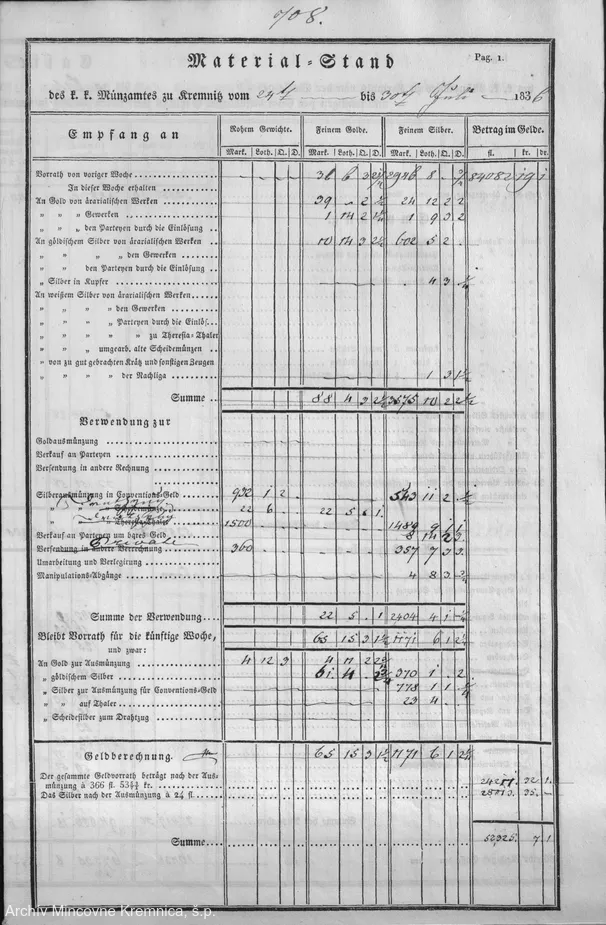 708.
Material-Stand
Pag. 1.
des k. k. Münzamtes zu Kremnitz vom 24t bis 30t July 1836
Empfang an | Rohem Gewichte. | Feinem Golde. | Feinem Silber. | Betrag im Gelde.
Mark. Loth. Q. D. | Mark. Loth. Q. D. | Mark. Loth. Q. D. | fl. kr. dr.
Vorrath von voriger Woche 84082 19 1
In dieser Woche erhalten
An Gold von ärarialischen Werken 39 - 2 24 12 2 2
„ „ „ Gewerken 1 14 2 1½ 1 9 3 2
„ „ „ den Parteyen durch die Einlösung
An göldischem Silber von ärarialischen Werken 10 14 3 2½ 602 5 2 .
„ „ „ „ den Gewerken
„ „ „ den Parteyen durch die Einlösung
„ Silber in Kupfer . 4 3
An weißem Silber von ärarialischen Werken
„ „ „ „ den Gewerken
„ „ „ „ Parteyen durch die Einlös.
„ „ „ „ „ zu Theresia-Thaler
„ „ „ umgearb. alte Scheidemünzen
„ von zu gut gebrachten Krätz und sonstigen Zeugen
„ „ „ „ der Nachliga . 1 3 1½
Summe 88 4 3 2½ 3575 10 2 2½
Verwendung zur
Goldausmünzung
Verkauf an Parteyen
Versendung in andere Rechnung
Silberausmünzung in Conventions-Geld 932 1 2 543 11 2
22 6 . 22 5 . 1
„ „ Theresia-Thaler 1500 1489 9 1 1
Verkauf an Parteyen um bares Geld 8 14 2 3
Versendung in andere Verrechnung 360 357 7 3 3
Umarbeitung und Verlegirung
Manipulations-Abgänge 4 8 3
Summe der Verwendung 22 5 . 1 2404 4 1
Bleibt Vorrath für die künftige Woche, 65 15 3 1½ 1171 6 1 2¼
und zwar:
An Gold zur Ausmünzung 4 12 3 4 11 2
„ göldischem Silber 61 4 370 1 . 2
„ Silber zur Ausmünzung für Conventions-Geld 778 1 1
„ „ auf Thaler 23 4 .
„ Scheidesilber zum Drahtzug
Geldberechnung. 65 15 3 1½ 1171 6 1 2¼
Der gesammte Geldvorrath beträgt nach der Aus-
münzung à 366 fl. 53¾ kr. 32 1
Das Silber nach der Ausmünzung à 24 fl. 35 -
Summe 52325 7 1
Archív Mincovne Kremnica, š.p.